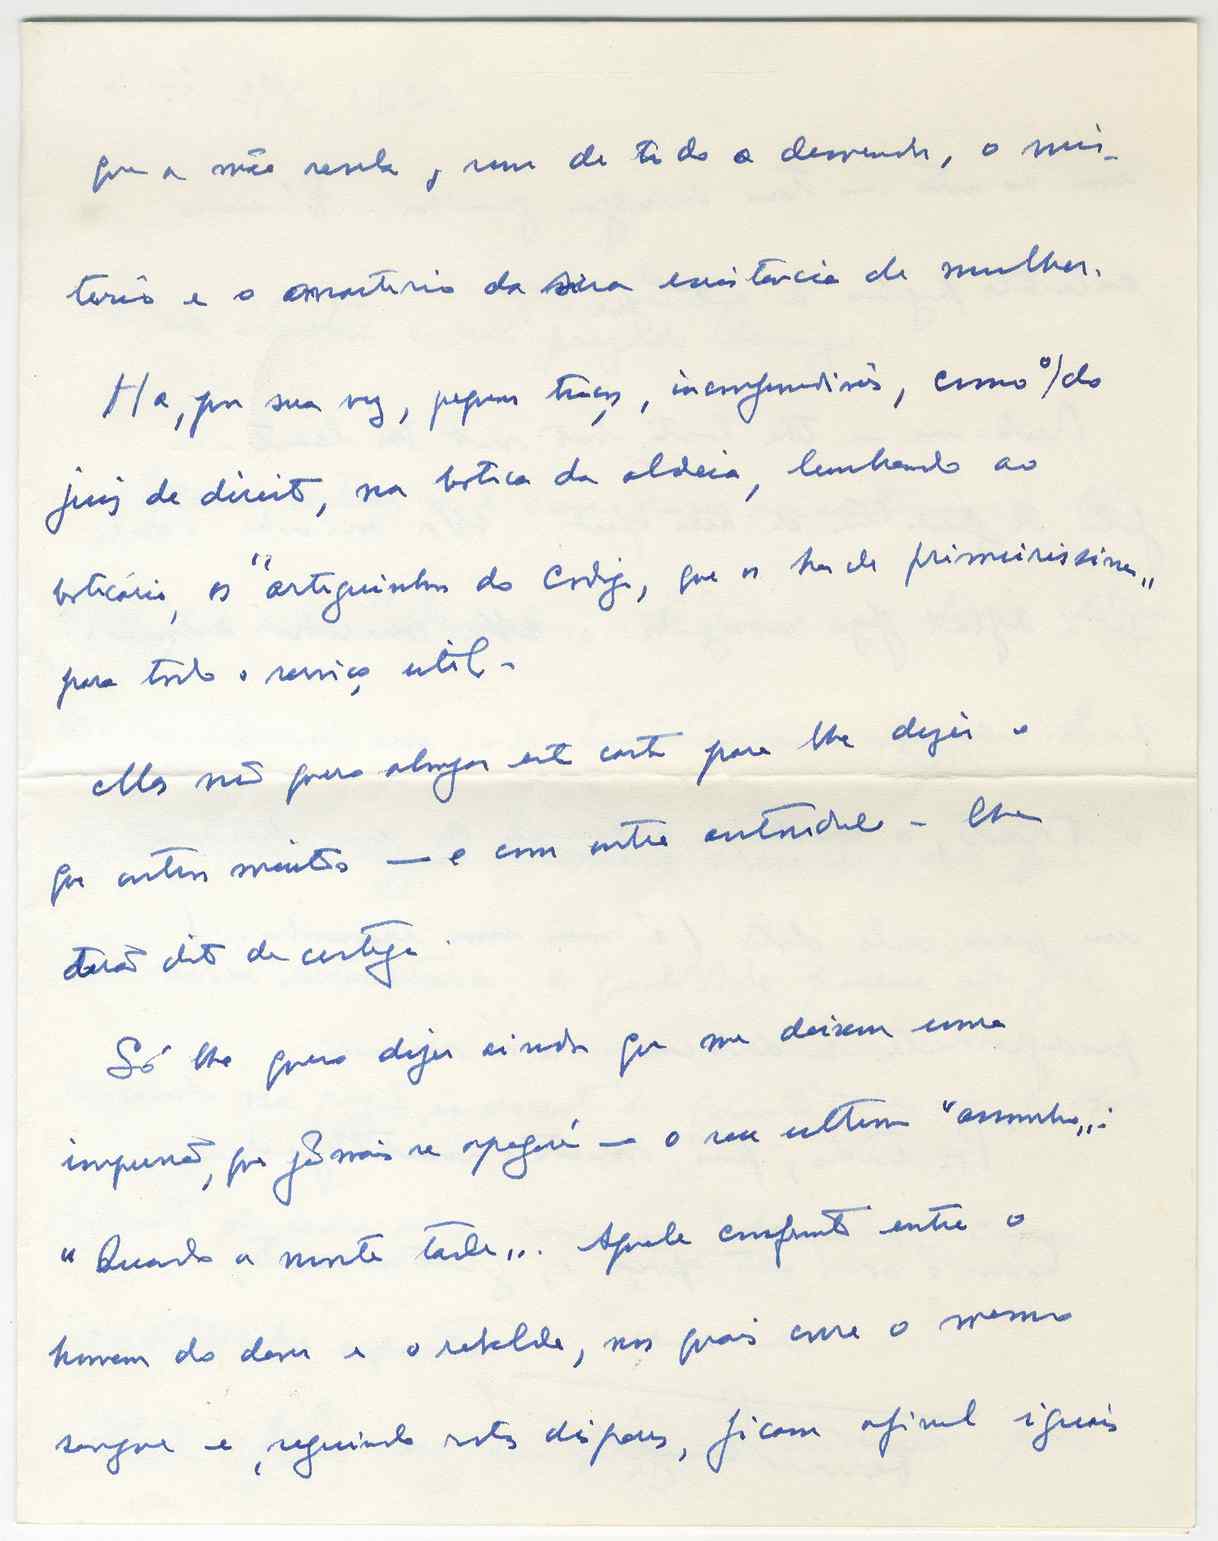 que a mão revela, sem de todo a desvendar, o mis-
terio e o martirio da sua existencia de mulher.
Ha, por sua vez, pequenos traços, inconfundiveis, como o/do
juiz de direito, na botica da aldeia, lembrando ao
boticário, os "artiguinhos do Codigo, que os ha de primeirissima"
para todo o serviço util.
Mas não quero alongar esta carta para lhe dizer o
que outros muitos — e com outra autoridade — lhe
terão dito de certeza.
Só lhe quero dizer ainda que me deixou uma
impressão, que jámais se apagará — o seu ultimo "assombro":
"Quando a morte tarda". Aquele confronto entre o
homem do dever e o rebelde, nos quais corre o mesmo
sangue e, seguindo rotas dispares, ficam afinal iguais